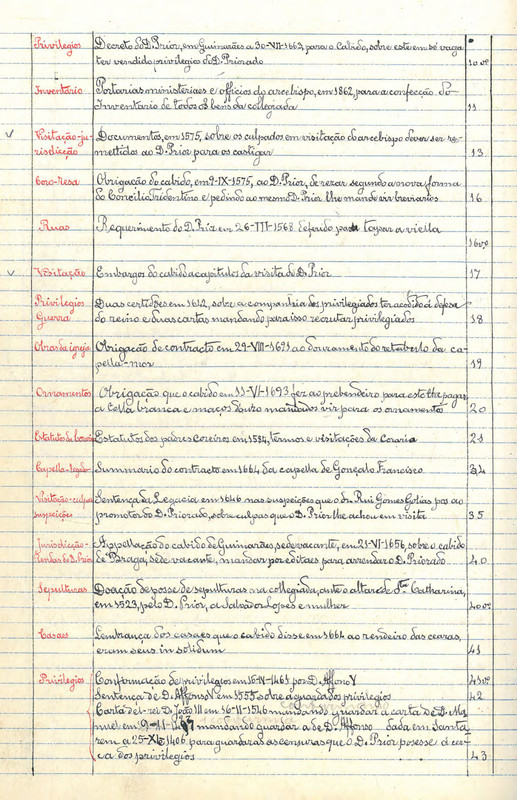 Privilegios Decreto do D. Prior, em Guimarães a 30-VII-1662, para o Cabido, sobre este em sé vaga
ter vendido privilegios do D. Priorado 10 vº
Inventario Portarias ministeriaes e officios do arcebispo, em 1862, para a confecção do
Inventario de todos os bens da collegiada 11
Visitação-ju- Documentos, em 1575, sobre os culpados em visitação do arcebispo dever ser re-
risdicção mettidos ao D. Prior para os castigar 13
Coro-resa Obrigação do cabido, em 9-IX-1575, ao D. Prior, de rezar segundo a nova forma
do Concilio Tridentino e pedindo ao mesmo D. Prior lhe mande vir breviarios 16
Ruas Requerimento do D. Prior em 26-III-1568 deferido para tapar a viella
16 vº
Visitação Embargo do cabido a capitulos da visita do D. Prior 17
Privilegios Duas certidões em 1642, sobre a companhia dos privilegiados ter acodido á defesa
Guerra do reino e duas cartas mandando para isso recrutar privilegiados 18
Obras da igreja Obrigação de contracto em 29-VIII-1691 ao douramento do retabulo da ca-
pella-mor 19
Ornamentos Obrigação que o cabido em 11-VI-1693 fez ao prebendeiro para este lhe pagar
a tella branca e maços d'ouro mandados vir para os ornamentos 20
Estatutos da Coraria Estatutos dos padres coreiros em 1584, termos e visitações da Coraria 21
Capella-legado Summario do contracto em 1664 da capella de Gonçalo Francisco 34
Visitação-culpas Sentença da Legacia em 1646 nas suspeições que o dr. Rui Gomes Golias pos ao
suspeições promotor do D. Priorado, sobre culpas que o D. Prior lhe achou em visita 35
Jurisdicção- Appellação do cabido de Guimarães, sede vacante, em 21-VI-1656, sobre o cabido
rendas do D. Prior de Braga, sede vacante, mandar por editaes para arrendar o D. Priorado 40
Sepulturas Doação de posse de sepulturas na collegiada, ante o altar de Stª Catharina,
em 1523, pelo D. Prior, a Salvador Lopes e mulher 40 vº
Casaes Lembrança dos casaes que o cabido disse em 1664 ao rendeiro das cearas,
eram seus in solidum 41
Privilegios Confirmação de privilegios em 16-IV-1461 por D. Affonso V 41 vº
Sentença de D. Affonso V em 1555 sobre a guarda dos privilegios 42
Carta del-rei D. João III em 16-II-1540 mandando guardar a carta de D. Ma-
nuel em 9-II-1497 mandando guardar a de D. Affonso dada em Santa-
rem a 25-XI-1406 para guardar as censuras que o D. Prior posesse á cer-
ca dos privilegios 43